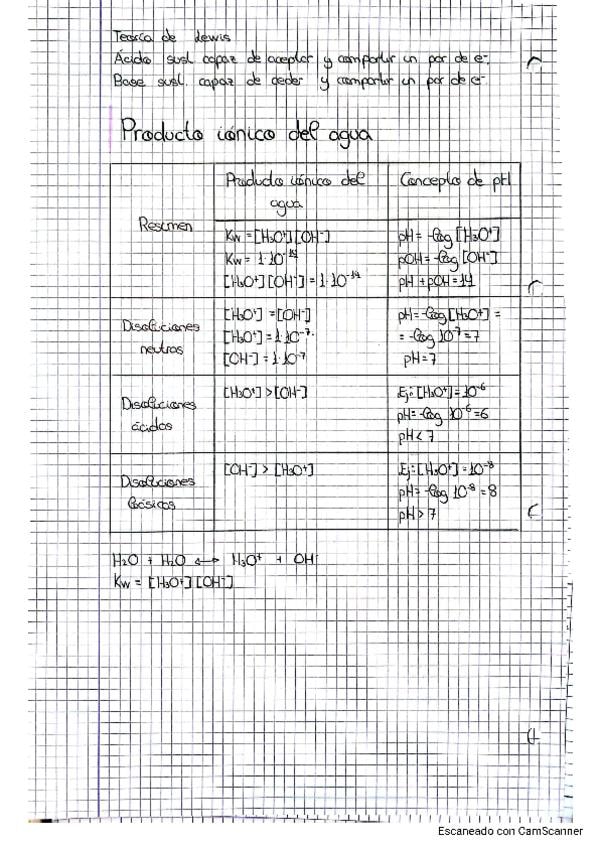 Teoría de Lewis
Ácido sust. capaz de aceptar y compartir un par de e-.
Base sust. capaz de ceder y compartir un par de e-
Producto iónico del agua
Resumen
Producto iónico del
agua
Concepto de pH
Kw = [H3O+][OH-]
Kw = 1·10-14
[H3O+][OH-] = 1·10-14
pH = -log [H3O+]
pOH = -log [OH-]
pH + pOH = 14
Disoluciones
neutras
[H3O+] = [OH-]
[H3O+] = 1·10-7
[OH-] = 1·10-7
pH = -log [H3O+] =
= -log 10-7 = 7
pH = 7
Disoluciones
ácidas
[H3O+] > [OH-]
Ej: [H3O+] = 10-6
pH = -log 10-6 = 6
pH < 7
Disoluciones
básicas
[OH-] > [H3O+]
Ej: [H3O+] = 10-8
pH = -log 10-8 = 8
pH > 7
H2O + H2O ↔ H3O+ + OH-
Kw = [H3O+][OH-]
Escaneado con CamScanner